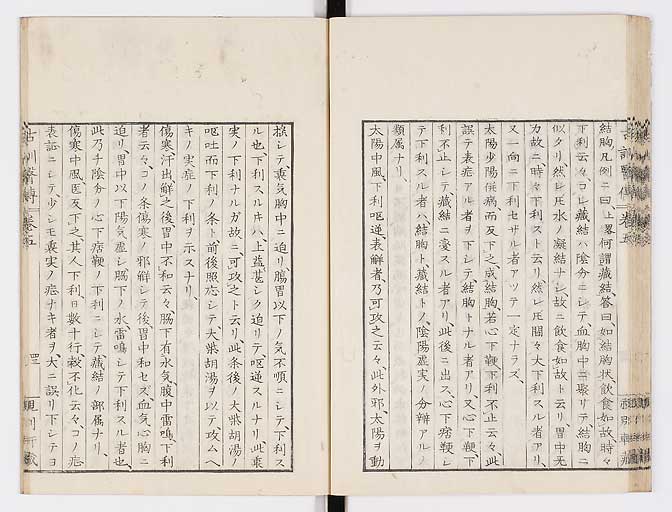 結胸凡例ニ曰、上畧何謂藏結答曰如結胸狀飲食如故時々
下利云々コレ藏結ハ陰分ニシテ血胸中ニ聚リテ結胸ニ
似タリ然レ圧水ノ凝結ナシ故ニ飲食如故ト云リ、胃中无
力故ニ時々下利スト云リ然レ圧關々大下利スル者アリ、
又一向ニ下利セザル者アツテ一定ナラズ、
太陽少陽併病而反下之成結胸若心下鞕下利不止云々此
誤テ表症アル者ヲ下シテ結胸トナル者アリ、又心下鞕下
利不止シテ、藏結ニ変スル者アリ此後ニ出ス、心下痞鞕シ
テ下利スル者ハ、結胸ト、藏結トノ、陰陽虚実ノ分辨アル
類属ナリ、
太陽中風、下利呕逆、表觧者乃可攻之云々、此外邪、太陽ヲ動
搖シテ、裏気胸中ニ迫リ腸胃以下ノ気不順ニシテ、下利ス
ル也下利スル圧ハ上益甚シク迫リテ、呕逆スルナリ此裏
実ノ下利ナルガ故ニ、可攻之ト云リ、此条後ノ大柴胡湯ノ
呕吐而下利ノ条ト前後照応シテ、大柴胡湯ヲ以テ攻ムヘ
キノ実症ノ下利ヲ示スナリ、
傷寒汗出觧之後胃中不和云々、脇下有水気腹中雷鳴、下利
者云々、コノ条傷寒ノ邪觧シテ後、胃中和セズ血気心胸ニ
迫リ、胃中以下陽気虚シ脇下ノ水、雷鳴シテ下利スル者也、
此乃チ陰分ノ心下痞鞕ノ下利ニシテ藏結ノ部属ナリ、
傷寒中風医反下之其人下利日數十行穀不化云々コノ症
表証ニシテ、少シモ裏実ノ症ナキ者ヲ、大ニ誤リ下シテヨ
古訓醫傳 卷五
四三